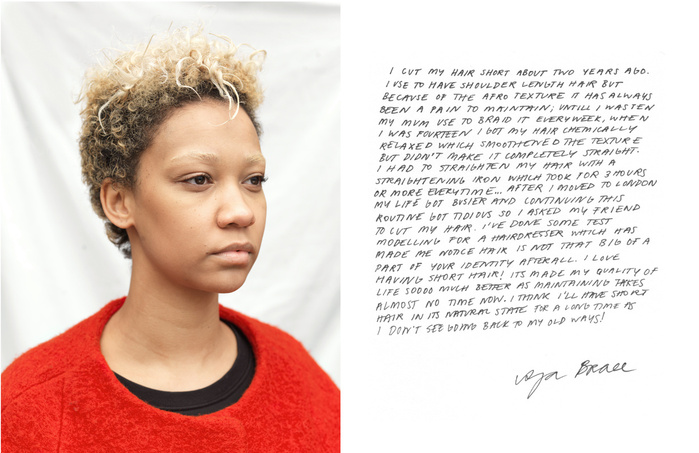 I CUT MY HAIR SHORT ABOUT TWO YEARS AGO.
I USE TO HAVE SHOULDER LENGTH HAIR BUT
BECAUSE OF THE AFRO TEXTURE IT HAS ALWAYS
BEEN A PAIN TO MAINTAIN; UNTILL I WAS TEN
MY MUM USE TO BRAID IT EVERYWEEK, WHEN
I WAS FOURTEEN I GOT MY HAIR CHEMICALLY
RELAXED WHICH SMOOTHENED THE TEXTURE
BUT DIDN'T MAKE IT COMPLETELY STRAIGHT.
I HAD TO STRAIGHTEN MY HAIR WITH A
STRAIGHTENING IRON WHICH TOOK FOR 3 HOURS
OR MORE EVERYTIME... AFTER I MOVED TO LONDON
MY LIFE GOT BUSIER AND CONTINUING THIS
ROUTINE GOT TIDIOUS SO I ASKED MY FRIEND
TO CUT MY HAIR. I'VE DONE SOME TEST
MODELLING FOR A HAIRDRESSER WHICH HAS
MADE ME NOTICE HAIR IS NOT THAT BIG OF A
PART OF YOUR IDENTITY AFTERALL. I LOVE
HAVING SHORT HAIR! ITS MADE MY QUALITY OF
LIFE SOOOO MUCH BETTER AS MAINTAINING TAKES
ALMOST NO TIME NOW. I THINK I'LL HAVE SHORT
HAIR IN ITS NATURAL STATE FOR A LONG TIME AS
I DON'T SEE GOING BACK TO MY OLD WAYS!